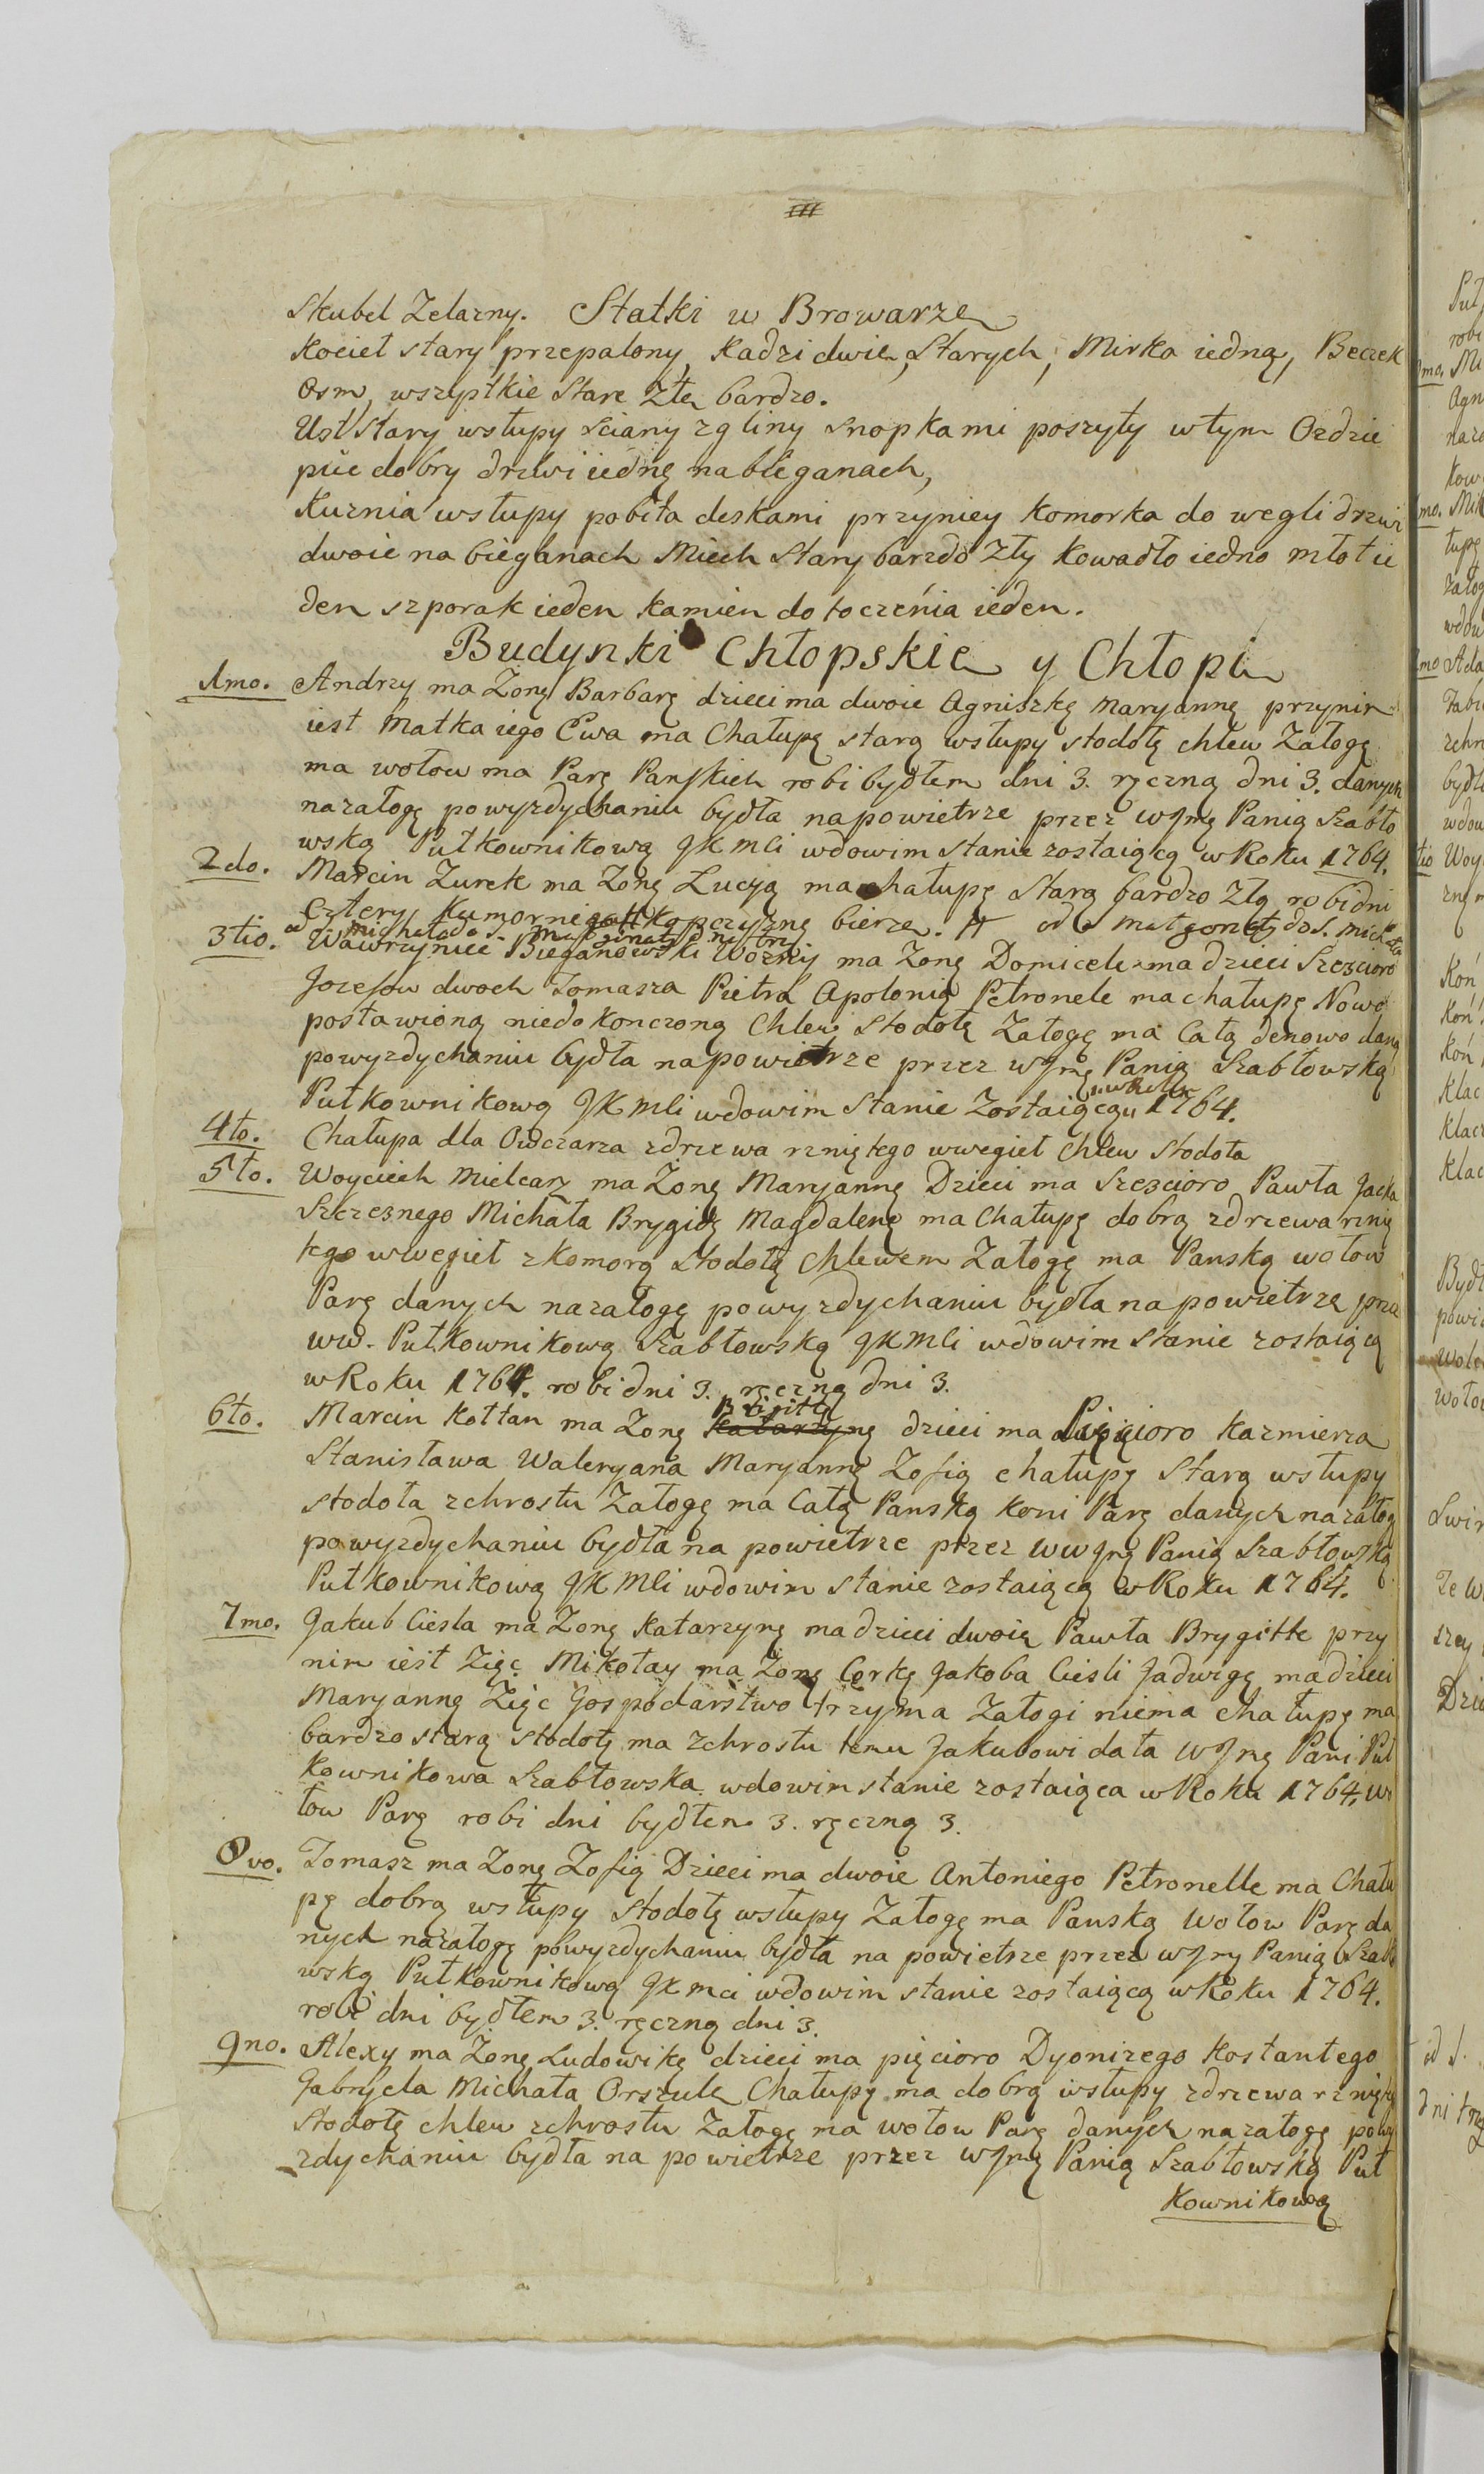 III
Skubel Zelazny. Statki w Browarze
Kocieł stary przepalony, Kadzi dwie, Starych, Mirka iedną, Beczek
Osm, wszystkie Stare Złe bardzo.
Ust Stary wstupy Sciany zgliny Snopkami poszyty wtym Ozdzie
piie dobry drzwi iedne nabieganach,
Kuznia wstupy pobita deskami przyniey Komorka do wegli drzwi
dwoie na bieganach Miech Stary barzdo Zły Kowadło iedno młot ie
den szporak ieden Kamien do toczenia ieden.
Budynki Chłopskie y Chłopi
1mo. Andrzy ma Zonę Barbarę dzieci ma dwoie Agniszkę Maryannę przynim
iest Matka iego Ewa ma Chałupę starą wstupy stodołę chlew Załogę
ma wołow ma Parę Panskich robi bydłem dni 3. ręczną dni 3. danych
nazałogę powyzdychaniu bydła napowietrze przez WJnę Panią Szabło
wską Pułkownikową JKMli wdowim stanie zostaiącą w Roku 1764.
2do. Marcin Zurek ma Zonę Lucyą ma chałupę Starą bardzo Złą robi dni
Cztery Kumorniczą Kopczyznę bierze. # od S Małgorzaty do S. Michała
ad Michała do S. Małgorzaty dni trzy
3tio. Wawrzyniec Bieganowski Wozny ma Zonę Domicele ma dzieci Szescioro
Jozefow dwoch Tomasza Pietra Apolonią Petronele ma chałupę Nowo
postawioną niedokonczoną Chlew Stodołę Załogę ma Całą denowo daną
powyzdychaniu bydła napowietrze przez WJnę Panią Szabłowską
Pułkownikową JKMli wdowim Stanie Zostaiącą wRoku 1764.
4to. Chałupa dla Owczarza zdrzewa rzniętego wwegieł Chlew Stodoła
5to. Woyciech Mielcarz ma Zonę Maryannę Dzieci ma Szescioro Pawła Jacka
Szczesnego Michała Brygidę Magdalenę ma Chałupę dobrą zdrzewa rznię
tego wwegieł zKomorą Stodołą Chlewem Załogę ma Panską wołow
Parę danych nazałogę powyzdychaniu bydła napowietrze prze
WW. Pułkownikową Szabłowską JKMli wdowim Stanie zostaiącą
wRoku 1764. robi dni 3. ręczną dni 3.
6to. Marcin Kołtan ma Zonę Katarzynę Brigittę dzieci ma Pięcioro Kazmierza
Stanisława Waleryana Maryannę Zofią chałupę Starą wstupy
stodoła zchrostu Załogę ma Całą Panską Koni Parę danych nazałog
powyzdychaniu bydła na powietrze przez WWJnę Panią Szabłowską
Pułkownikową JKMli wdowim stanie zostaiącą wRoku 1764.
7mo. Jakub Ciesla ma Zonę Katarzynę ma dzieci dwoie Pawła Brygitte przy
nim iest Zięc Mikołay ma Zonę Corkę Jakoba Ciesli Jadwigę ma dzieci
Maryannę Zięc Gospodarstwo trzyma Załogi niema chałupę ma
bardzo starą stodołę ma Zchrostu temu Jakubowi dała WJnę Pani Puł
kownikowa Szabłowska wdowim stanie zostaiąca wRoku 1764. wo
łow Parę robi dni bydłem 3. ręczną 3.
8vo. Tomasz ma Zonę Zofią Dzieci ma dwoie Antoniego Petronelle ma Chału
pę dobrą wstupy Stodołę wstupy Załogę ma Panską Wołow Parę da
nych nazałogę powyzdychaniu bydła na powietrze przez WJny Panią Szabło
wską Pułkownikową JKMci wdowim stanie zostaiącą wRoku 1764.
robi dni bydłem 3. ręczną dni 3.
9no. Alexy ma Zonę Ludowikę dzieci ma pięcioro Dyonizego Kostantego
Gabryela Michała Orszule Chałupę ma dobrą wstupy zdrzewa rznięte
Stodołę chlew zchrostu Załogę ma wołow Parę danych nazałogę powy
zdychaniu bydła na powietrze przez WJnę Panią Szabłowską Puł
Kownikową